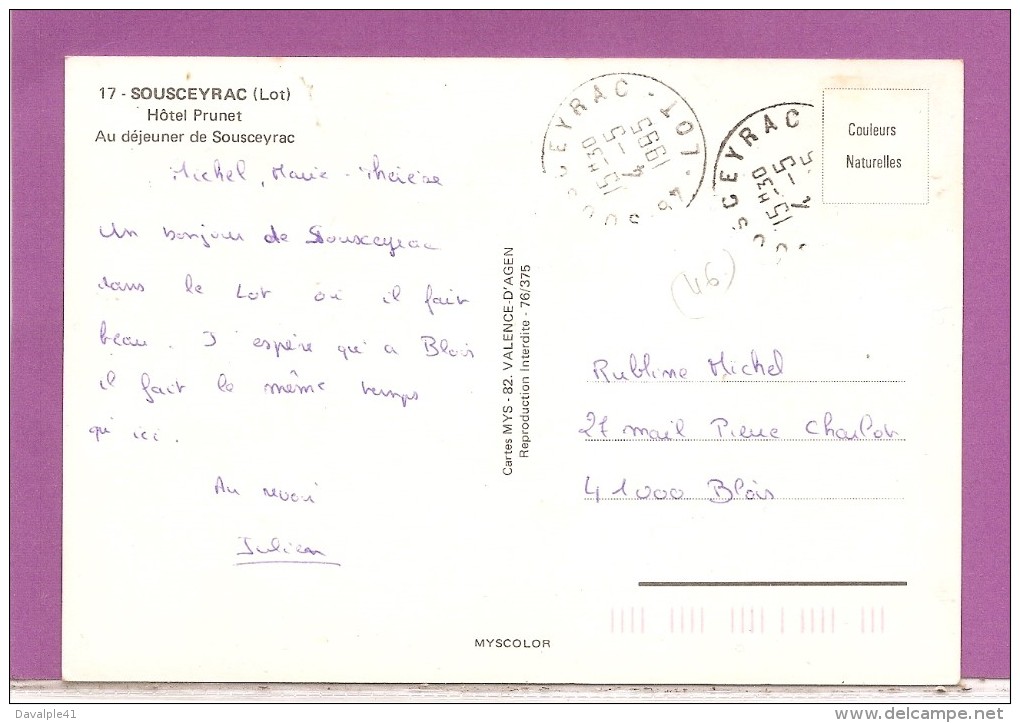 17 - SOUSCEYRAC (Lot)
Hôtel Prunet
Au déjeuner de Sousceyrac
Michel, Marie-Thérèse
Un bonjour de Sousceyrac
dans le Lot où il fait
beau. J'espère qu'a Blois
il fait le même temps
qu'ici.
Au revoir
Julien
Cartes MYS - 82. VALENCE-D'AGEN
Reproduction Interdite - 76/375
SOUSCEYRAC - LOT - 46
15H30
5-5
1995
SOUSCEYRAC
15H30
5-5
Couleurs
Naturelles
(46)
Rubline Michel
27 mail Pierre Charlot
41000 Blois
MYSCOLOR
Davalple41
www.delcampe.net